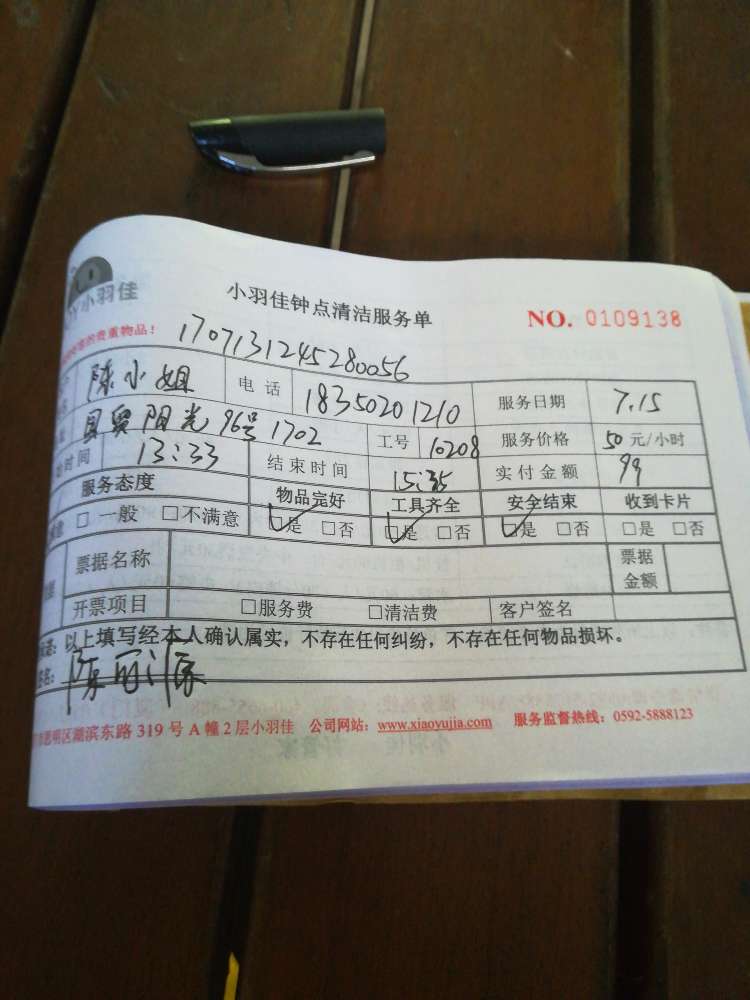 小羽佳
小羽佳钟点清洁服务单 NO. 0109138
的贵重物品！ 1707131245280056
陈小姐 电话 18350201210 服务日期 7.15
国贸阳光96号1702 工号 10208 服务价格 50元/小时
时间 13:33 结束时间 15:35 实付金额 99
服务态度 物品完好 工具齐全 安全结束 收到卡片
□一般 □不满意 □是 □否 □是 □否 □是 □否 □是 □否
票据名称 票据金额
开票项目 □服务费 □清洁费 客户签名
以上填写经本人确认属实，不存在任何纠纷，不存在任何物品损坏。
签名：
思明区湖滨东路319号A幢2层小羽佳 公司网站：www.xiaoyujia.com 服务监督热线：0592-5888123